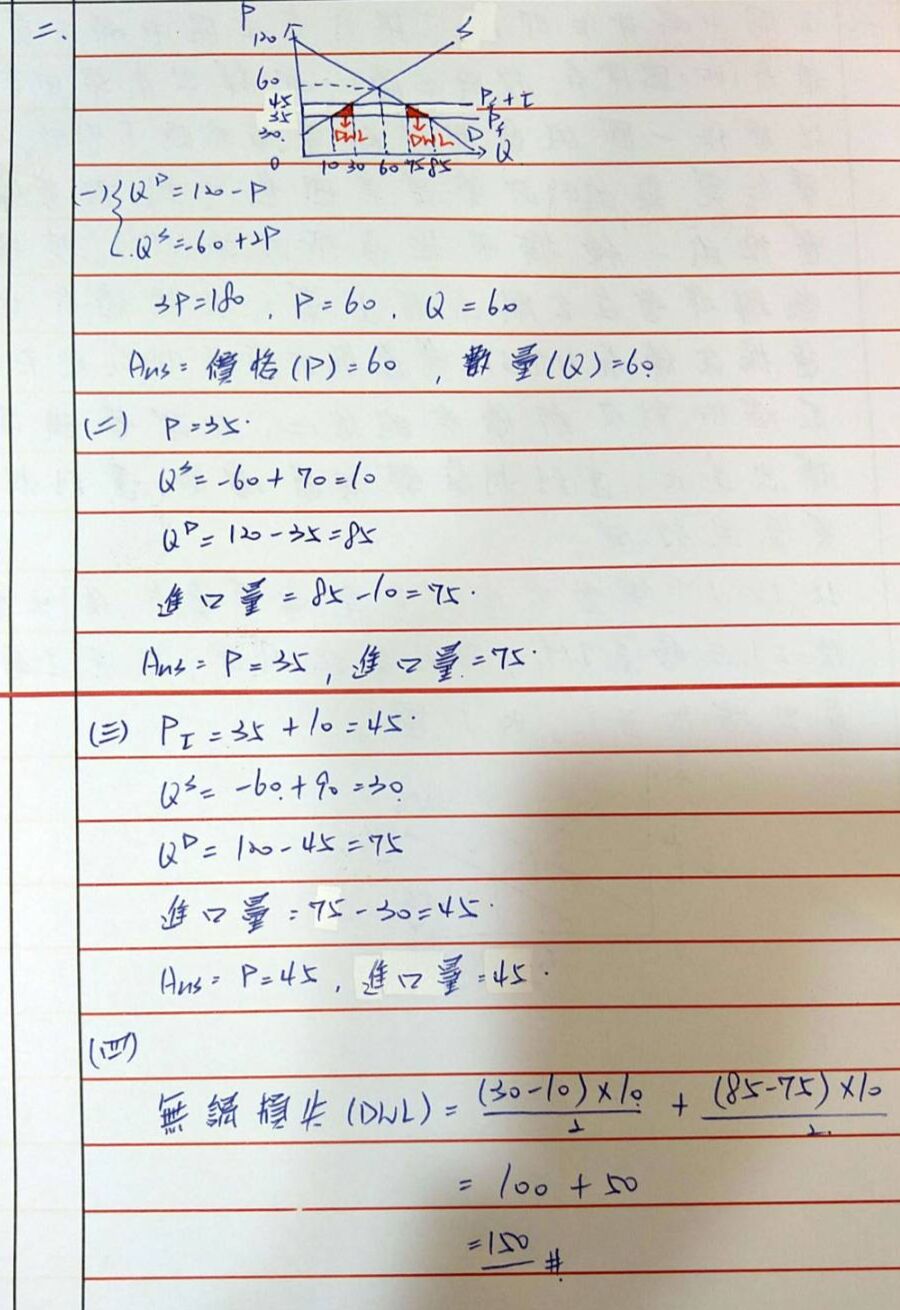 二.
P
120
S
60
45
Pf+I
35
Pf
30
DWL DWL D
0 10 30 60 75 85 Q
(一) { Q^D = 120 - P
Q^S = -60 + 2P
3P = 180 , P = 60 , Q = 60
Ans = 價格(P) = 60 , 數量(Q) = 60
(二) P = 35.
Q^S = -60 + 70 = 10
Q^D = 120 - 35 = 85
進口量 = 85 - 10 = 75.
Ans = P = 35 , 進口量 = 75.
(三) P_I = 35 + 10 = 45.
Q^S = -60 + 90 = 30
Q^D = 120 - 45 = 75
進口量 = 75 - 30 = 45.
Ans = P = 45 , 進口量 = 45.
(四)
無謂損失(DWL) = (30-10)×10/2 + (85-75)×10/2
= 100 + 50
= 150 #